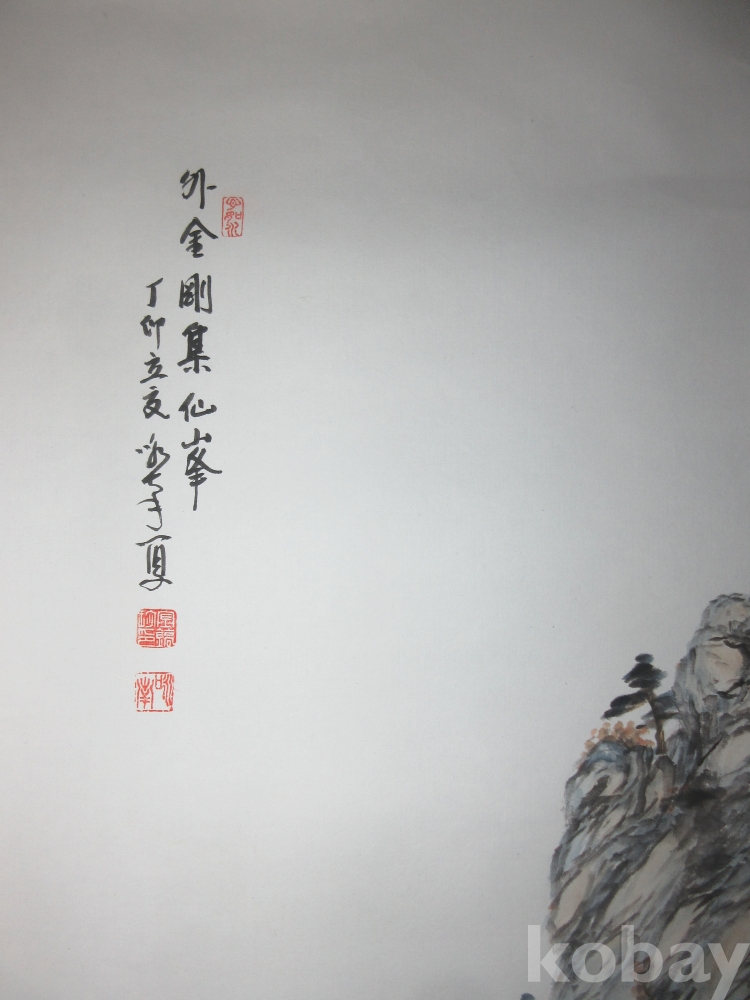 外金剛集仙峯
丁卯立夏 寫
kobay